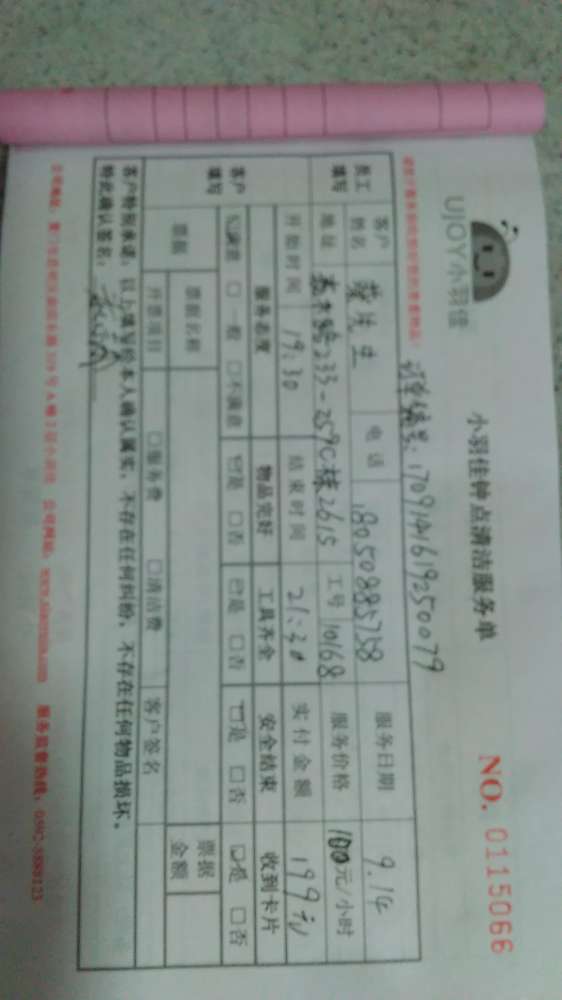 UJOY小羽佳
小羽佳钟点清洁服务单
NO. 0115066
订单编号：1709141619250079
员工填写
客户姓名
先生
电话
18050885758
服务日期
9.14
地址
233-259C栋2615
工号
10168
服务价格
100元/小时
开始时间
19:30
结束时间
21:30
实付金额
199元
客户填写
服务态度
物品完好
工具齐全
安全结束
收到卡片
☑满意 □一般 □不满意
☑是 □否
☑是 □否
☑是 □否
☑是 □否
票据
票据名称
票据金额
开票项目
□服务费 □清洁费
客户签名
客户特别承诺：以上填写经本人确认属实，不存在任何纠纷，不存在任何物品损坏。
特此确认签名：
公司网站：
服务监督热线：0592-5888123